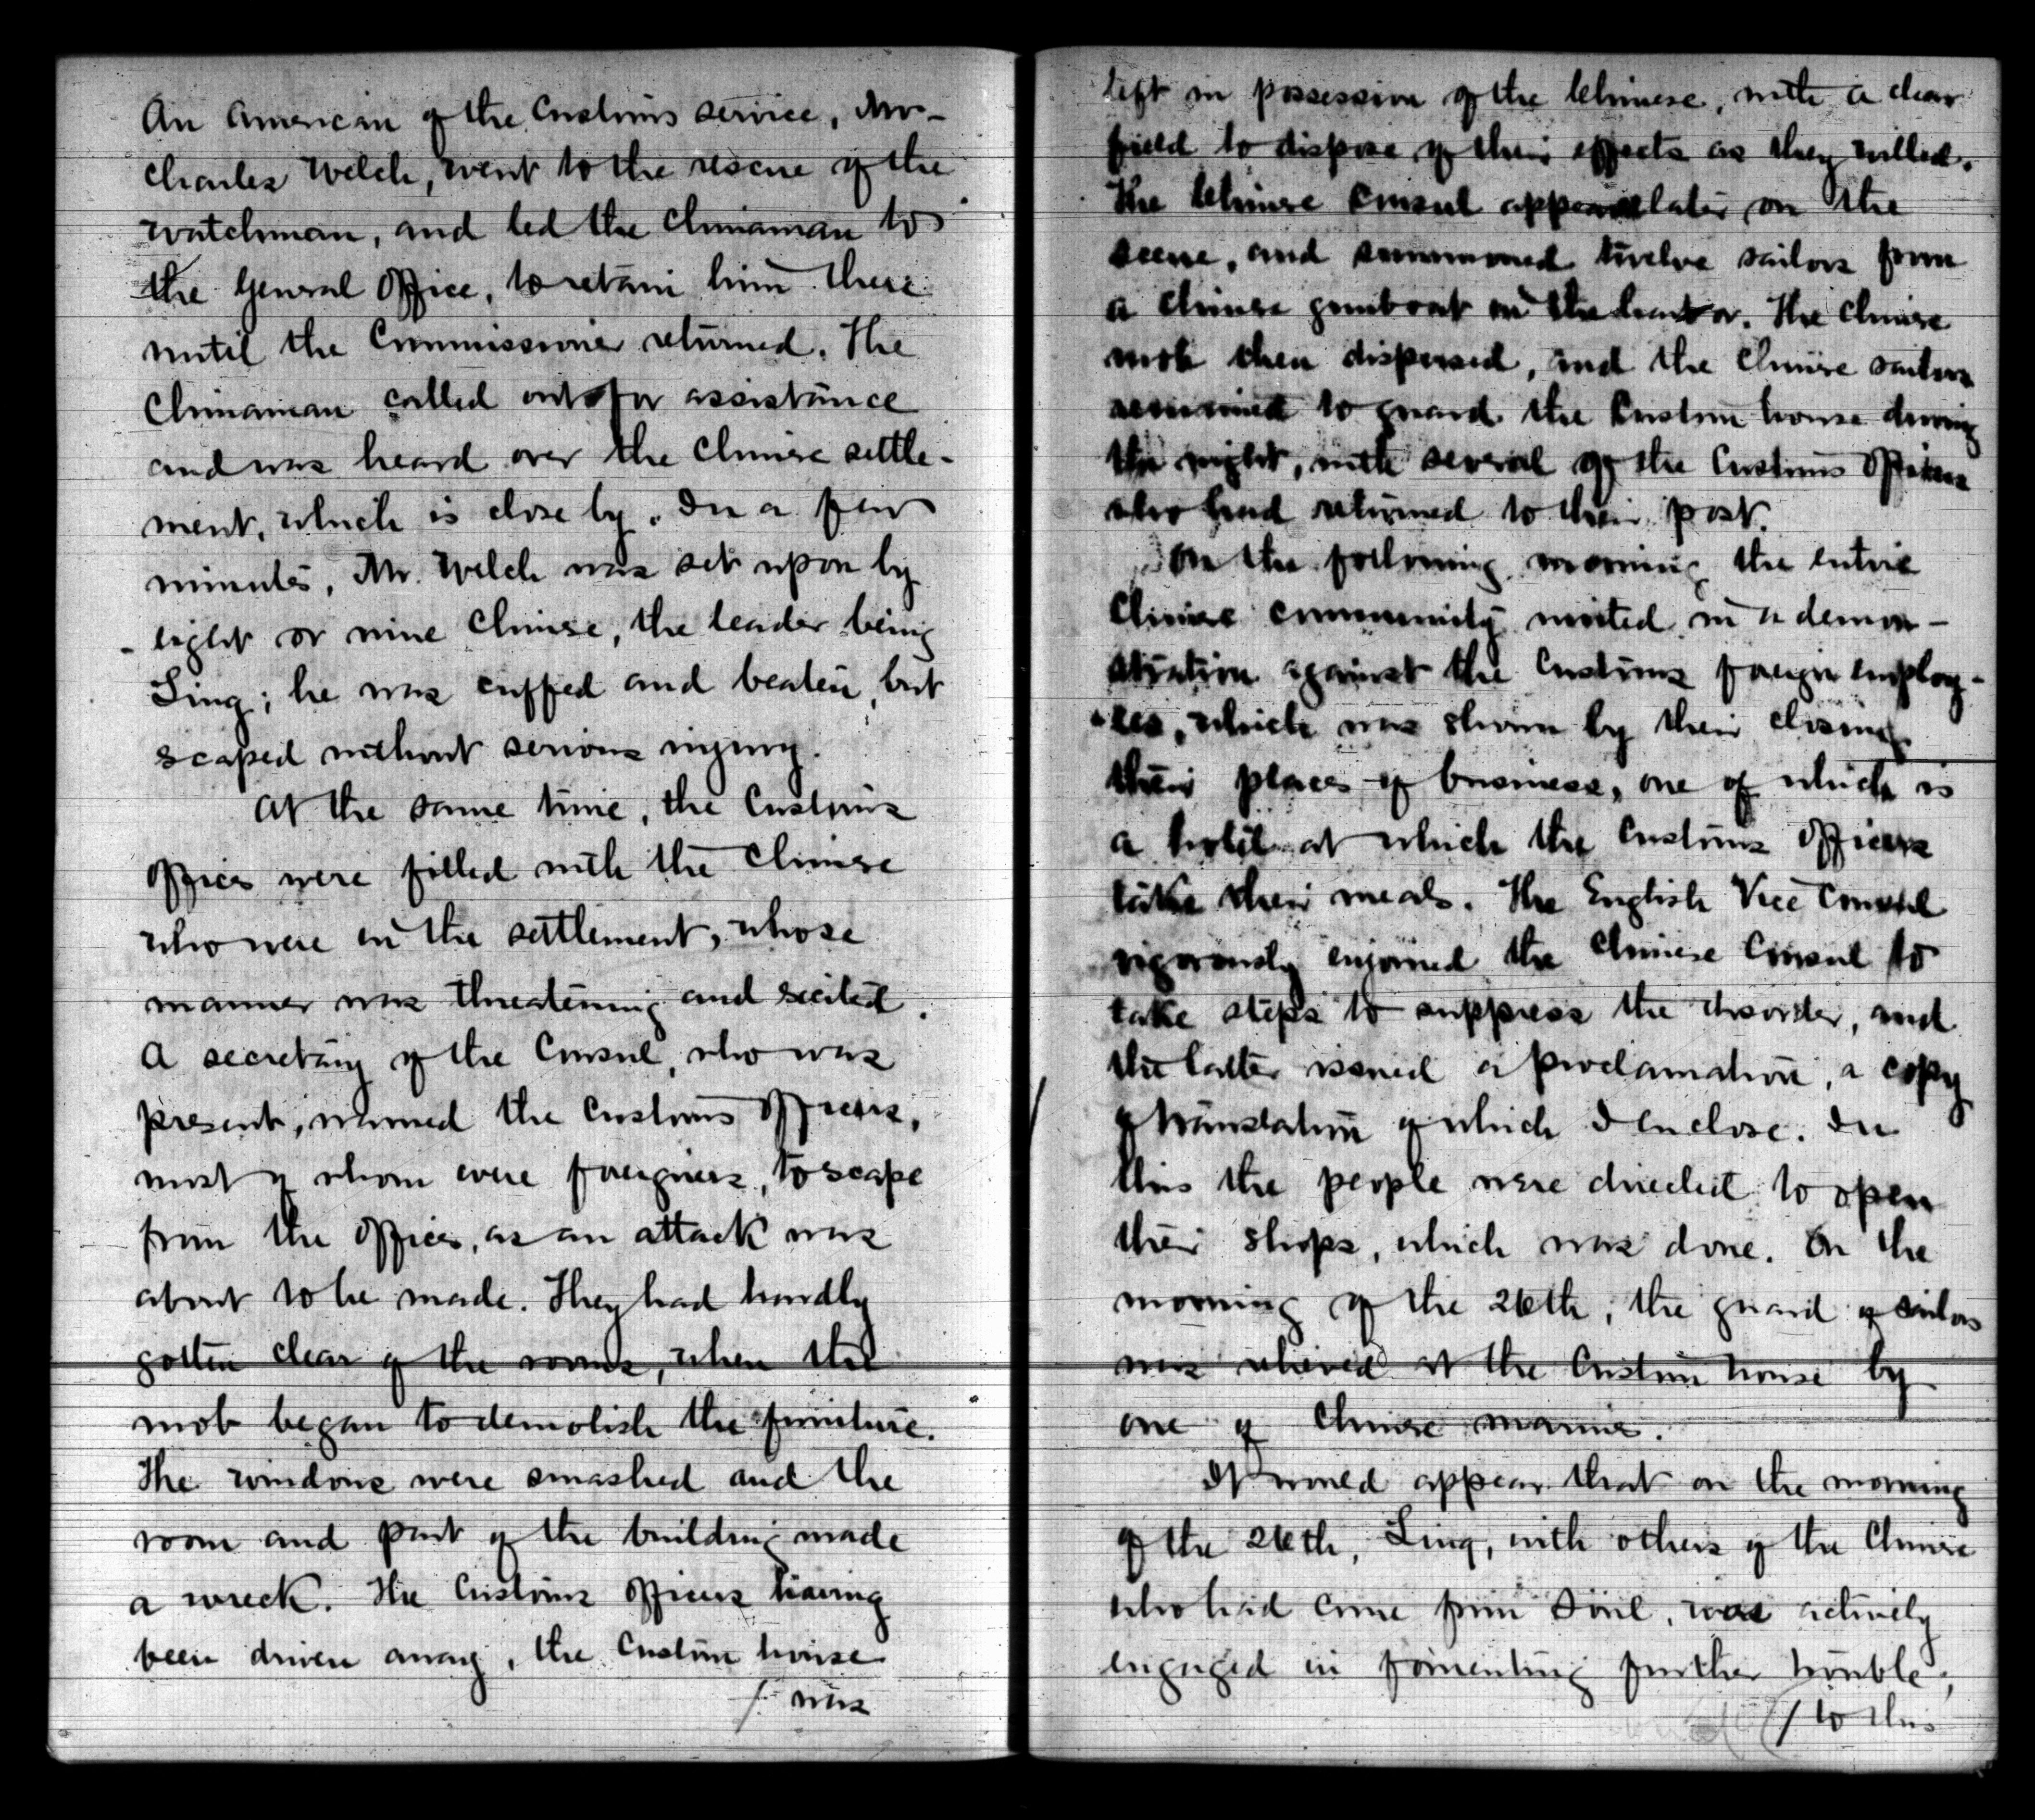 An American of the Customs service, Mr-
Charles Welch, went to the rescue of the
watchman, and led the Chinaman to
the General Office, to retain him there
until the Commissioner returned. The
Chinaman called out for assistance
and was heard over the Chinese settle-
ment, which is close by. In a few
minutes, Mr. Welch was set upon by
eight or nine Chinese, the leader being
Ling; he was cuffed and beaten, but
escaped without serious injury.
At the same time, the Customs
offices were filled with the Chinese
who were in the settlement, whose
manner was threatening and excited.
A secretary of the Consul, who was
present, warned the Customs Officers,
most of whom were foreigners, to escape
from the offices, as an attack was
about to be made. They had hardly
gotten clear of the rooms, when the
mob began to demolish the furniture.
The windows were smashed and the
room and part of the building made
a wreck. The Customs officers having
been driven away, the Custom house
/. was
left in possession of the Chinese, with a clear
field to dispose of their effects as they willed.
The Chinese Consul appeared later on the
scene, and summoned twelve sailors from
a Chinese gunboat in the harbor. The Chinese
mob then dispersed, and the Chinese sailors
remained to guard the Custom house during
the night, with several of the Customs Officers
who had returned to their post.
On the following morning the entire
Chinese community united in a demon-
stration against the Customs foreign employ-
ees, which was shown by their closing
their places of business, one of which is
a hotel at which the Customs Officers
take their meals. The English Vice Consul
vigorously enjoined the Chinese Consul to
take steps to suppress the disorder, and
the latter issued a proclamation, a copy
of translation of which I enclose. In
this the people were directed to open
their shops, which was done. On the
morning of the 26th, the guard of sailors
was relieved at the Custom house by
one of Chinese marines.
It would appear that on the morning
of the 26th, Ling, with others of the Chinese
who had come from Söul, was actively
engaged in fomenting further trouble;
/ to this